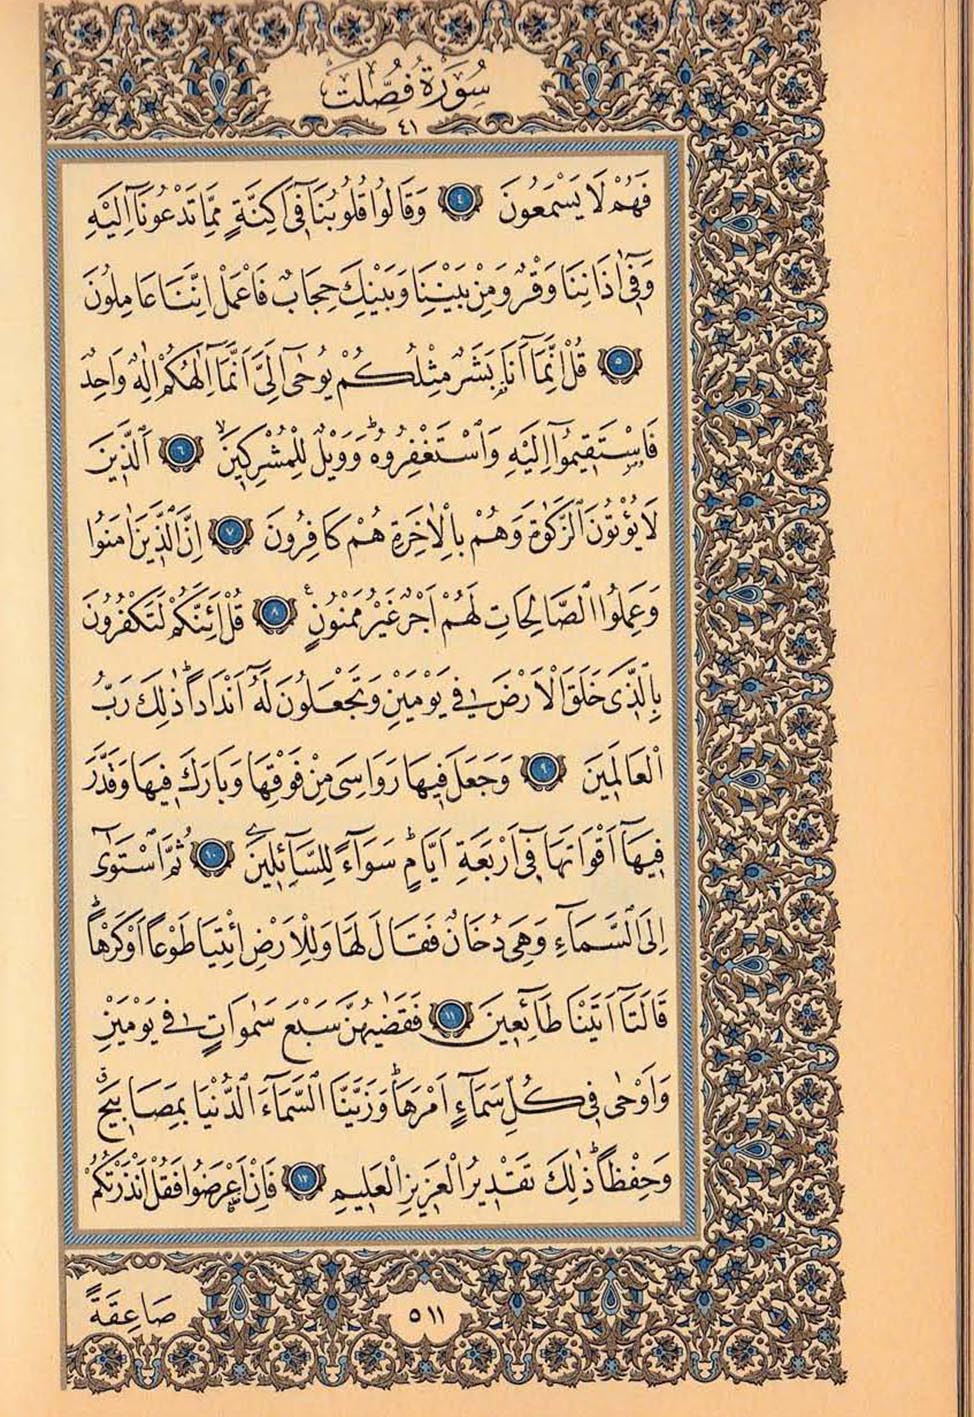 سُورَةُ فُصِّلَتْ
٤١
فَهُمْ لَا يَسْمَعُونَ ٤ وَقَالُوا قُلُوبُنَا فٓى اَكِنَّةٍ مِمَّا تَدْعُونَٓا اِلَيْهِ
وَفٓى اٰذَانِنَا وَقْرٌ وَمِنْ بَيْنِنَا وَبَيْنِكَ حِجَابٌ فَاعْمَلْ اِنَّنَا عَامِلُونَ
٥ قُلْ اِنَّمَٓا اَنَا۬ بَشَرٌ مِثْلُكُمْ يُوحٰٓى اِلَىَّ اَنَّمَٓا اِلٰهُكُمْ اِلٰهٌ وَاحِدٌ
فَاسْتَقِيمُٓوا اِلَيْهِ وَاسْتَغْفِرُوهُۜ وَوَيْلٌ لِلْمُشْرِكِينَۙ ٦ اَلَّذِينَ
لَا يُؤْتُونَ الزَّكٰوةَ وَهُمْ بِالْاٰخِرَةِ هُمْ كَافِرُونَ ٧ اِنَّ الَّذِينَ اٰمَنُوا
وَعَمِلُوا الصَّالِحَاتِ لَهُمْ اَجْرٌ غَيْرُ مَمْنُونٍ ٨ قُلْ اَئِنَّكُمْ لَتَكْفُرُونَ
بِالَّذِى خَلَقَ الْاَرْضَ فِى يَوْمَيْنِ وَتَجْعَلُونَ لَهُٓ اَنْدَادًاۜ ذٰلِكَ رَبُّ
الْعَالَمِينَ ٩ وَجَعَلَ فِيهَا رَوَاسِىَ مِنْ فَوْقِهَا وَبَارَكَ فِيهَا وَقَدَّرَ
فِيهَٓا اَقْوَاتَهَا فٓى اَرْبَعَةِ اَيَّامٍۜ سَوَٓاءً لِلسَّٓائِلِينَ ١٠ ثُمَّ اسْتَوٰٓى
اِلَى السَّمَٓاءِ وَهِىَ دُخَانٌ فَقَالَ لَهَا وَلِلْاَرْضِ ائْتِيَا طَوْعًا اَوْ كَرْهًاۜ
قَالَتَٓا اَتَيْنَا طَٓائِعِينَ ١١ فَقَضٰيهُنَّ سَبْعَ سَمٰوَاتٍ فِى يَوْمَيْنِ
وَاَوْحٰى فِى كُلِّ سَمَٓاءٍ اَمْرَهَاۜ وَزَيَّنَّا السَّمَٓاءَ الدُّنْيَا بِمَصَابِيحَۗ
وَحِفْظًاۜ ذٰلِكَ تَقْدِيرُ الْعَزِيزِ الْعَلِيمِ ١٢ فَاِنْ اَعْرَضُوا فَقُلْ اَنْذَرْتُكُمْ
صَاعِقَةً
٥١١